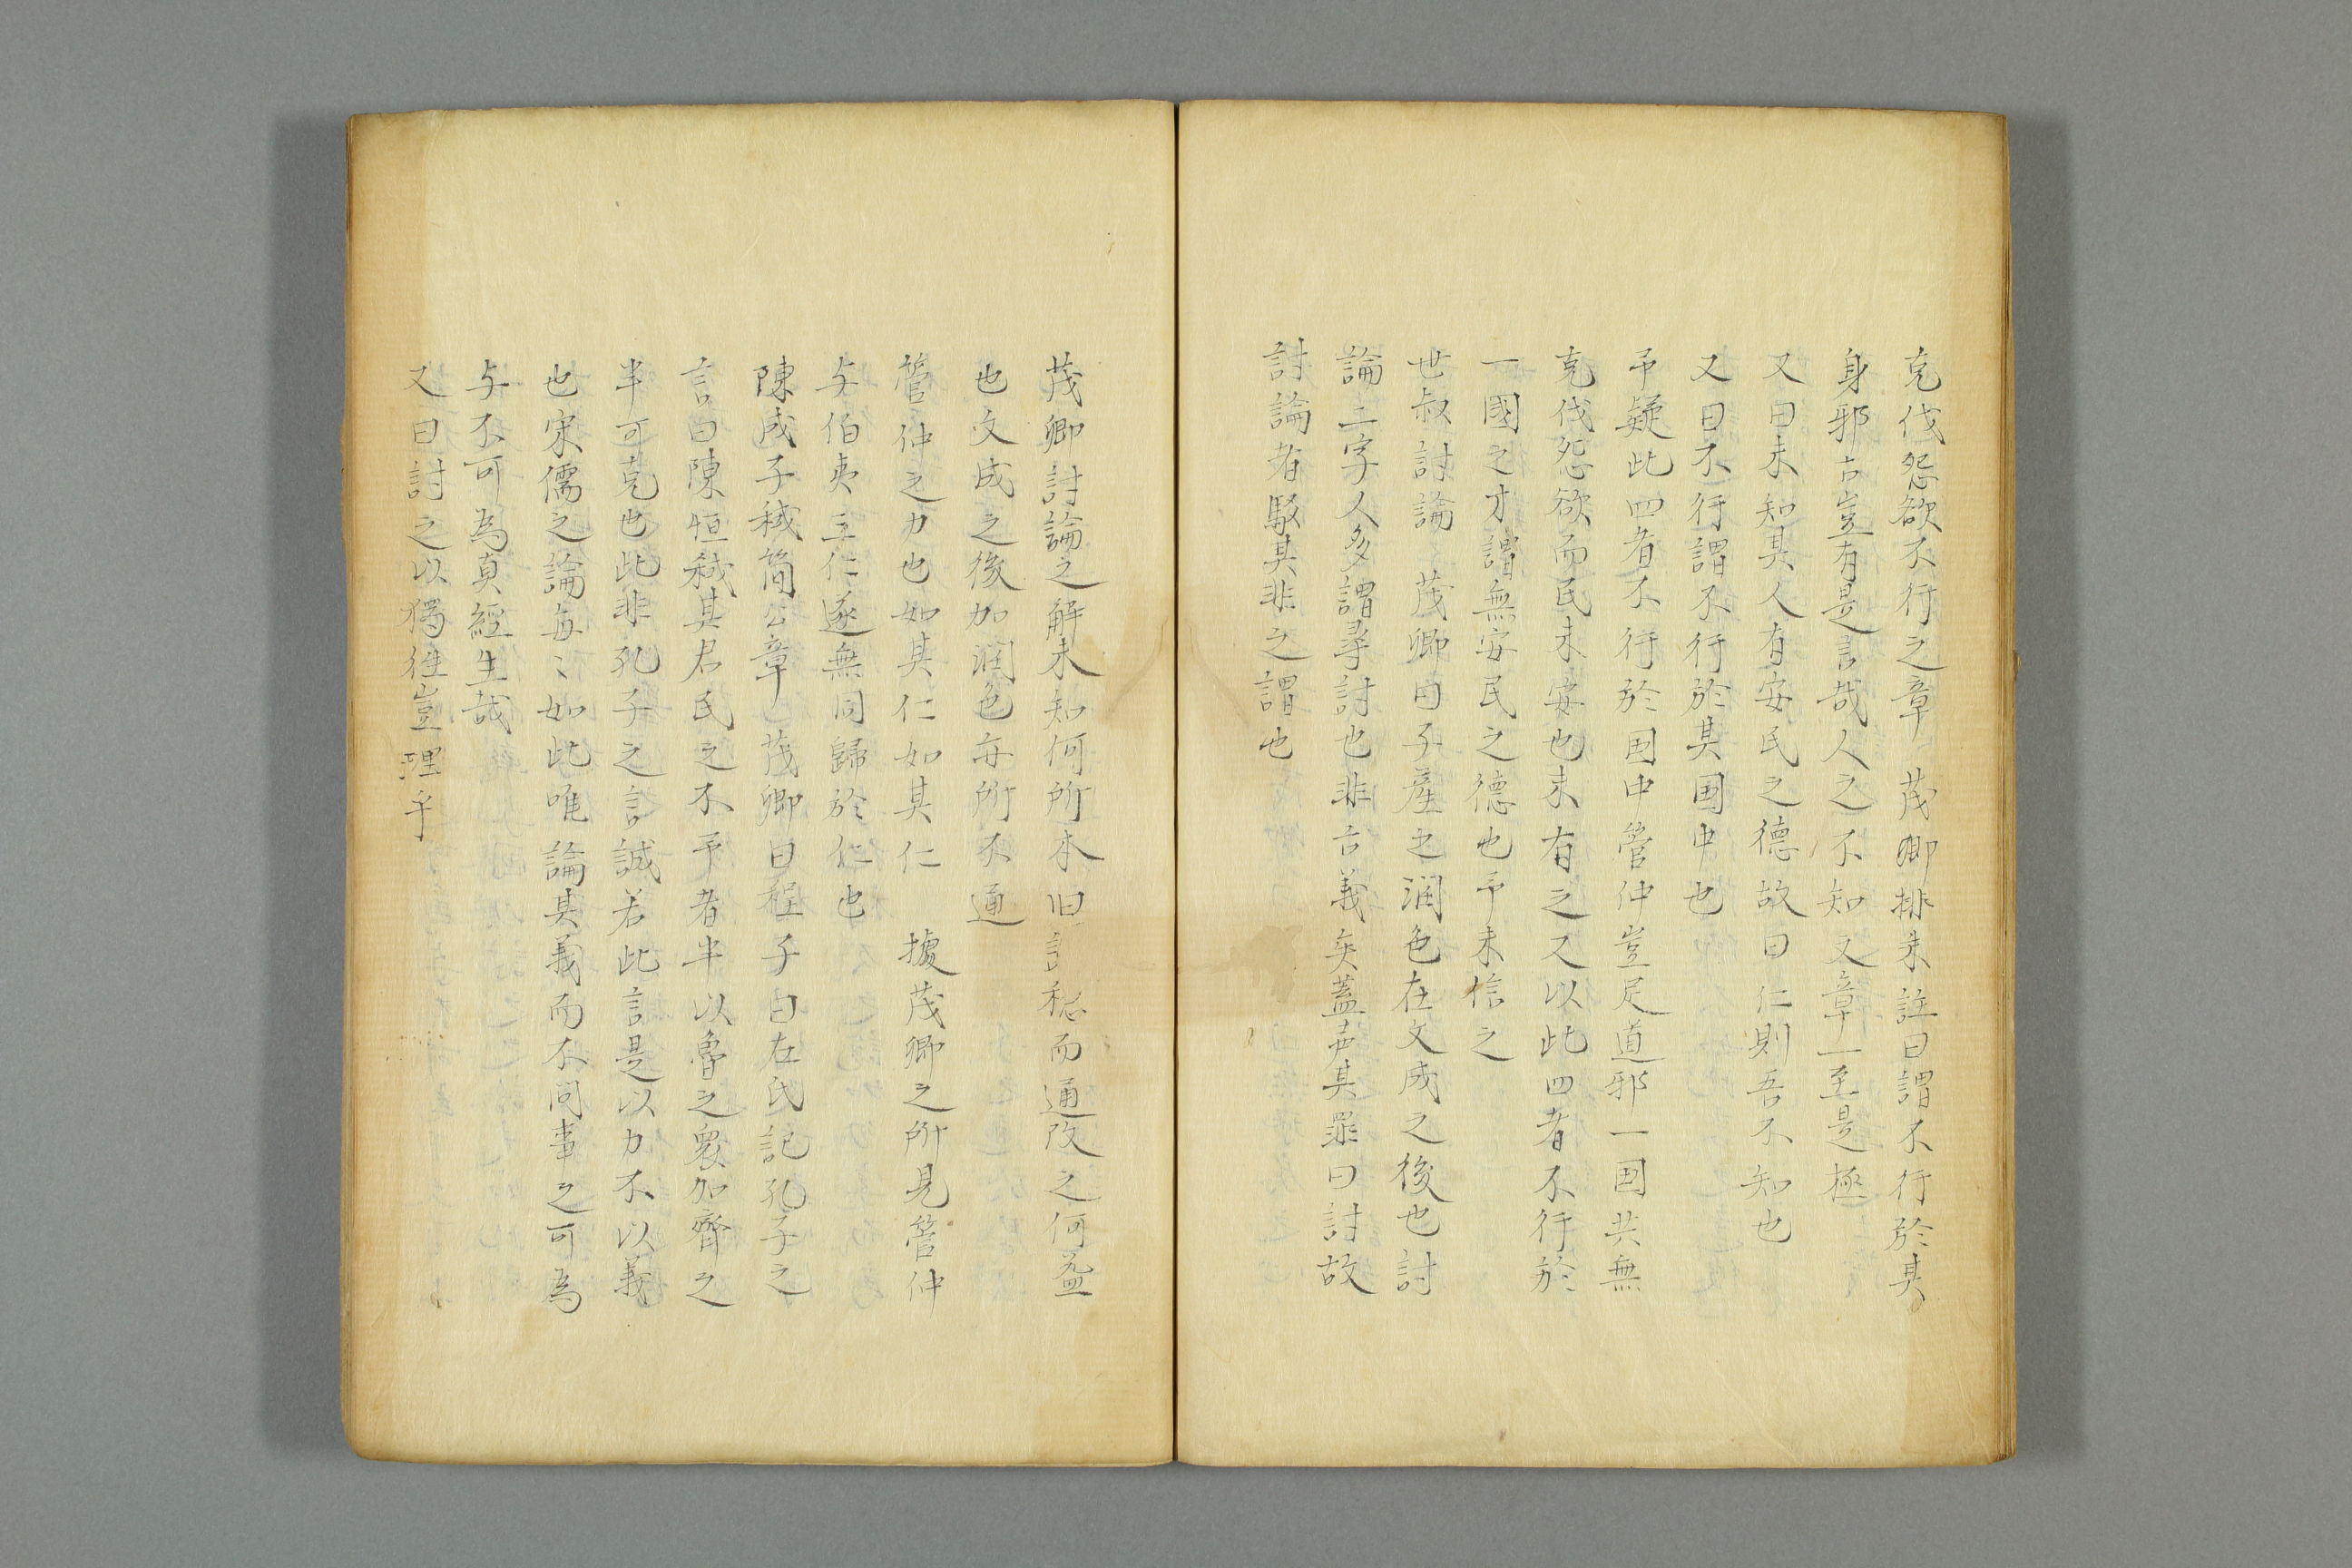 克伐怨欲不行之章　茂卿排朱註曰謂不行於其
身邪古豈有是言哉人之不知文章一至是極
又曰未知其人有安民之德故曰仁則吾不知也
又曰不行謂不行於其国中也
予疑此四者不行於国中管仲豈足道邪一国共無
克伐怨欲而民未安也未有之又以此四者不行於
一國之才謂無安民之德也予未信之
世叔討論　茂卿曰子產之潤色在文成之後也討
論二字人多謂尋討也非古義矣蓋声其罪曰討故
討論者駁其非之謂也
茂卿討論之解未知何所本旧註穏而通改之何益
也文成之後加潤色亦所不通
管仲之力也如其仁如其仁　據茂卿之所見管仲
与伯夷三仁遂無同歸於仁也
陳成子弑簡公章　茂卿曰程子曰左氏記孔子之
言曰陳恒弑其君民之不予者半以魯之衆加齊之
半可克也此非孔子之言誠若此言是以力不以義
也宋儒之論每〻如此唯論其義而不問事之可為
与不可為真經生哉
又曰討之以獨往豈理乎